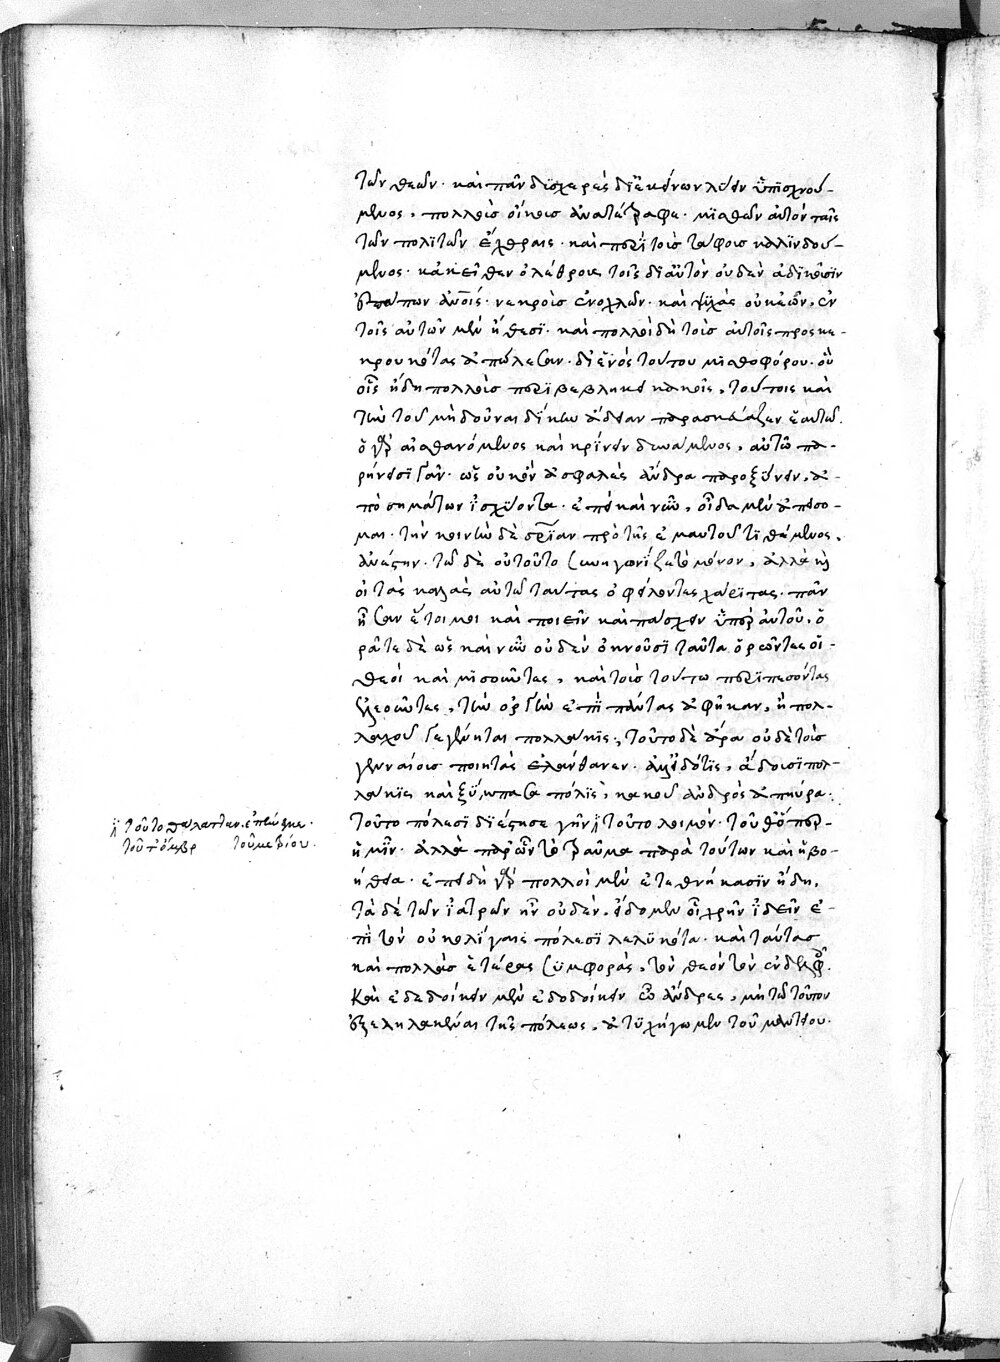 τῶν θεῶν· καὶ πᾶν δυσχερὲς δι' ἐκείνων λύειν ὑπισχνού-
μενος, πολλοὺς οἴκους ἀνατέτραφε· μισθῶν αὑτὸν ταῖς
τῶν πολιτῶν ἔχθραις· καὶ περὶ τοὺς τάφους καλινδού-
μενος· κἀκεῖθεν ὀλέθρους τοῖς δι' αὐτὸν οὐδὲν ἀδικοῦσιν
ἀνοις· νεκροὺς ἐνοχλῶν· καὶ ψυχὰς οὐκ ἐῶν, ἐν
τοῖς αὑτῶν μὲν ἤθεσι· καὶ πολλοὶ δὴ τοὺς αὐτοῖς προσκε-
κρουκότας ἀπώλεσαν· δι' ἑνὸς τούτου μισθοφόρου· οὗ
οἷς ἤδη πολλοὺς περιβέβληκε κακοῖς, τούτοις καὶ
τὴν τοῦ μὴ δοῦναι δίκην ἄδειαν παρασκευάζειν ἑαυτῷ.
ὁ γὰρ αἰσθανόμενος καὶ κρίνειν δυνάμενος, αὐτῷ πα-
ρήνεσι γὰρ· ὡς οὐκ ὂν ἀσφαλὲς ἄνδρα παροξύνειν, ἀ-
πὸ σημάτων ἰσχύοντα· ἐπεὶ καὶ νῦν, οἶδα μὲν ἃ πείσο-
μαι· τὴν κοινὴν δὲ σρίαν πρὸ τῆς ἐμαυτοῦ τιθέμενος,
ἀνέστην· τῷ δὲ οὐ τοῦτο συνηγωνίζετο μόνον, ἀλλὰ καὶ
οἱ τὰς καλὰς αὐτῷ ταύτας ὀφείλοντες χάριτας· πᾶν
ἦσαν ἕτοιμοι καὶ ποιεῖν καὶ πάσχειν ὑπὲρ αὐτοῦ, ὁ
ρᾶτε δὲ ὡς καὶ νῦν οὐδὲν ὀκνοῦσι ταῦτα ὁρῶντες οἱ
θεοὶ καὶ μισοῦντες, καὶ τοὺς τούτῳ περιπεσόντας
ἐλεοῦντες, τὴν ὀργὴν ἐπὶ πάντας ἀφῆκαν, ἣ πολ-
λαχοῦ γεγένηται πολλάκις, τοῦτο δὲ ἄρα οὐδὲ τοὺς
γενναίους ποιητὰς ἐλάνθανεν. ᾄδουσι πολ-
λάκις καὶ ξύμπασα πόλις, κακοῦ ἀνδρὸς ἀπηύρα·
τοῦτο πόλεσι διέστησε γῆν καὶ τοῦτο λοιμόν· τοῦθ' ὅπερ
ἡμῖν· ἀλλὰ παρῶν τὸ τραῦμα παρὰ τούτων καὶ ἡ βο-
ήθεια· ἐπειδὴ γὰρ πολλοὶ μὲν ἐτεθνήκασιν ἤδη,
τὰ δὲ τῶν ἰατρῶν ἦν οὐδὲν, εἴδομεν οἷ χρῆν ἰδεῖν ἐ-
πὶ τὸν οὐκ ὀλίγαις πόλεσι λελυκότα· καὶ ταύτας
καὶ πολλὰς ἑτέρας συμφοράς, τὸν θεὸν τὸν ἐν δελφ.
Καὶ ἐδεδοίκειν μὲν ἐδεδοίκειν ὦ ἄνδρες, μὴ τῷ τοῦτον
ἐξεληλακέναι τῆς πόλεως, ἀτυχήσωμεν τοῦ μαντείου.
καὶ τοῦτο θάλατταν. ἐπαύξησε·
τοῦτ' ὄμβρ τοῦμετρίου.